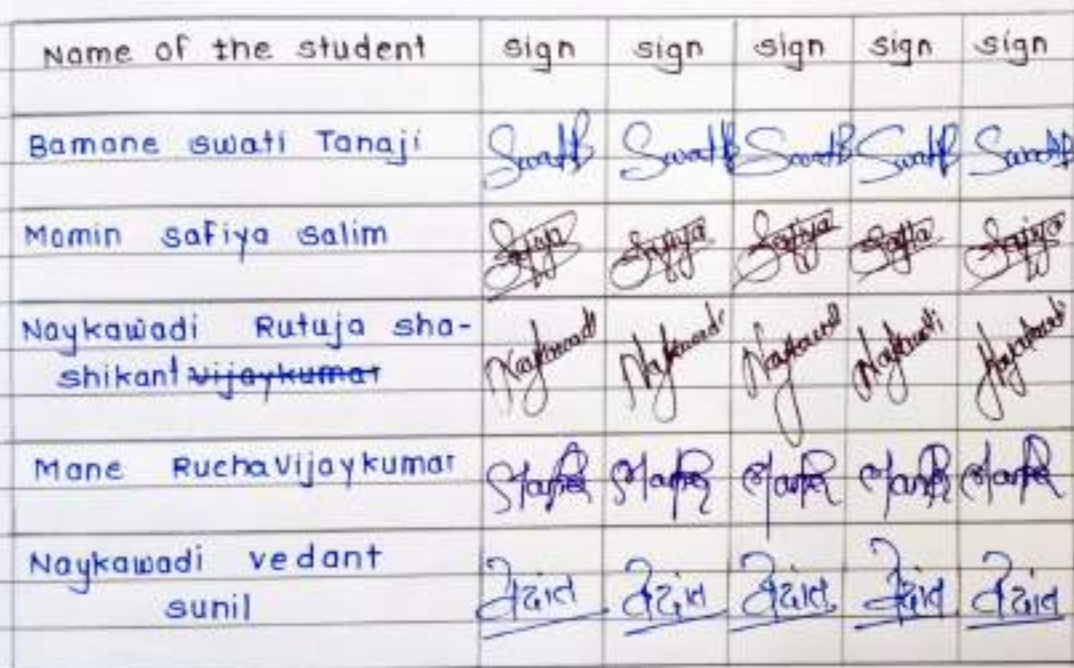 Name of the student sign sign sign sign sign
Bamane swati Tanaji SwatiB SwatiB SwatiB SwatiB SwatiB
Momin safiya salim Safiya Safiya Safiya Safiya Safiya
Naykawadi Rutuja sha- Naykawadi Naykawadi Naykawadi Naykawadi Naykawadi
shikant vijaykumar
Mane Rucha Vijaykumar
Naykawadi vedant वेदांत वेदांत वेदांत वेदांत वेदांत
sunil